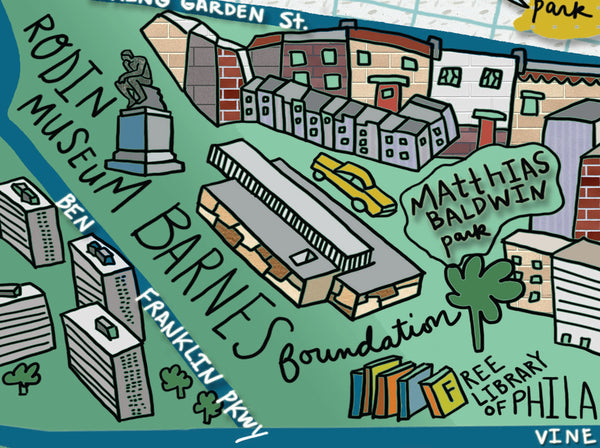 NG GARDEN ST.
park
RODIN
MUSEUM
BARNES
foundation
MattHias
BALDWIN
park
BEN FRANKLIN PKWY
FREE
LIBRARY
OF PHILA
VINE